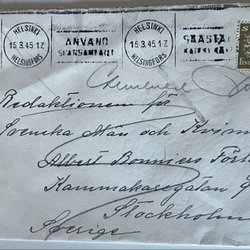 HELSINKI
15.3.45.17
HELSINGFORS
ANVÄND
HELSINKI
15.3.45.17
HELSINGFORS
SÄÄSTÄ
Redaktionen för
Svenska Män och Kvinnor
Albert Bonniers Förl
Kammakaregatan
Stockholm
Sverige